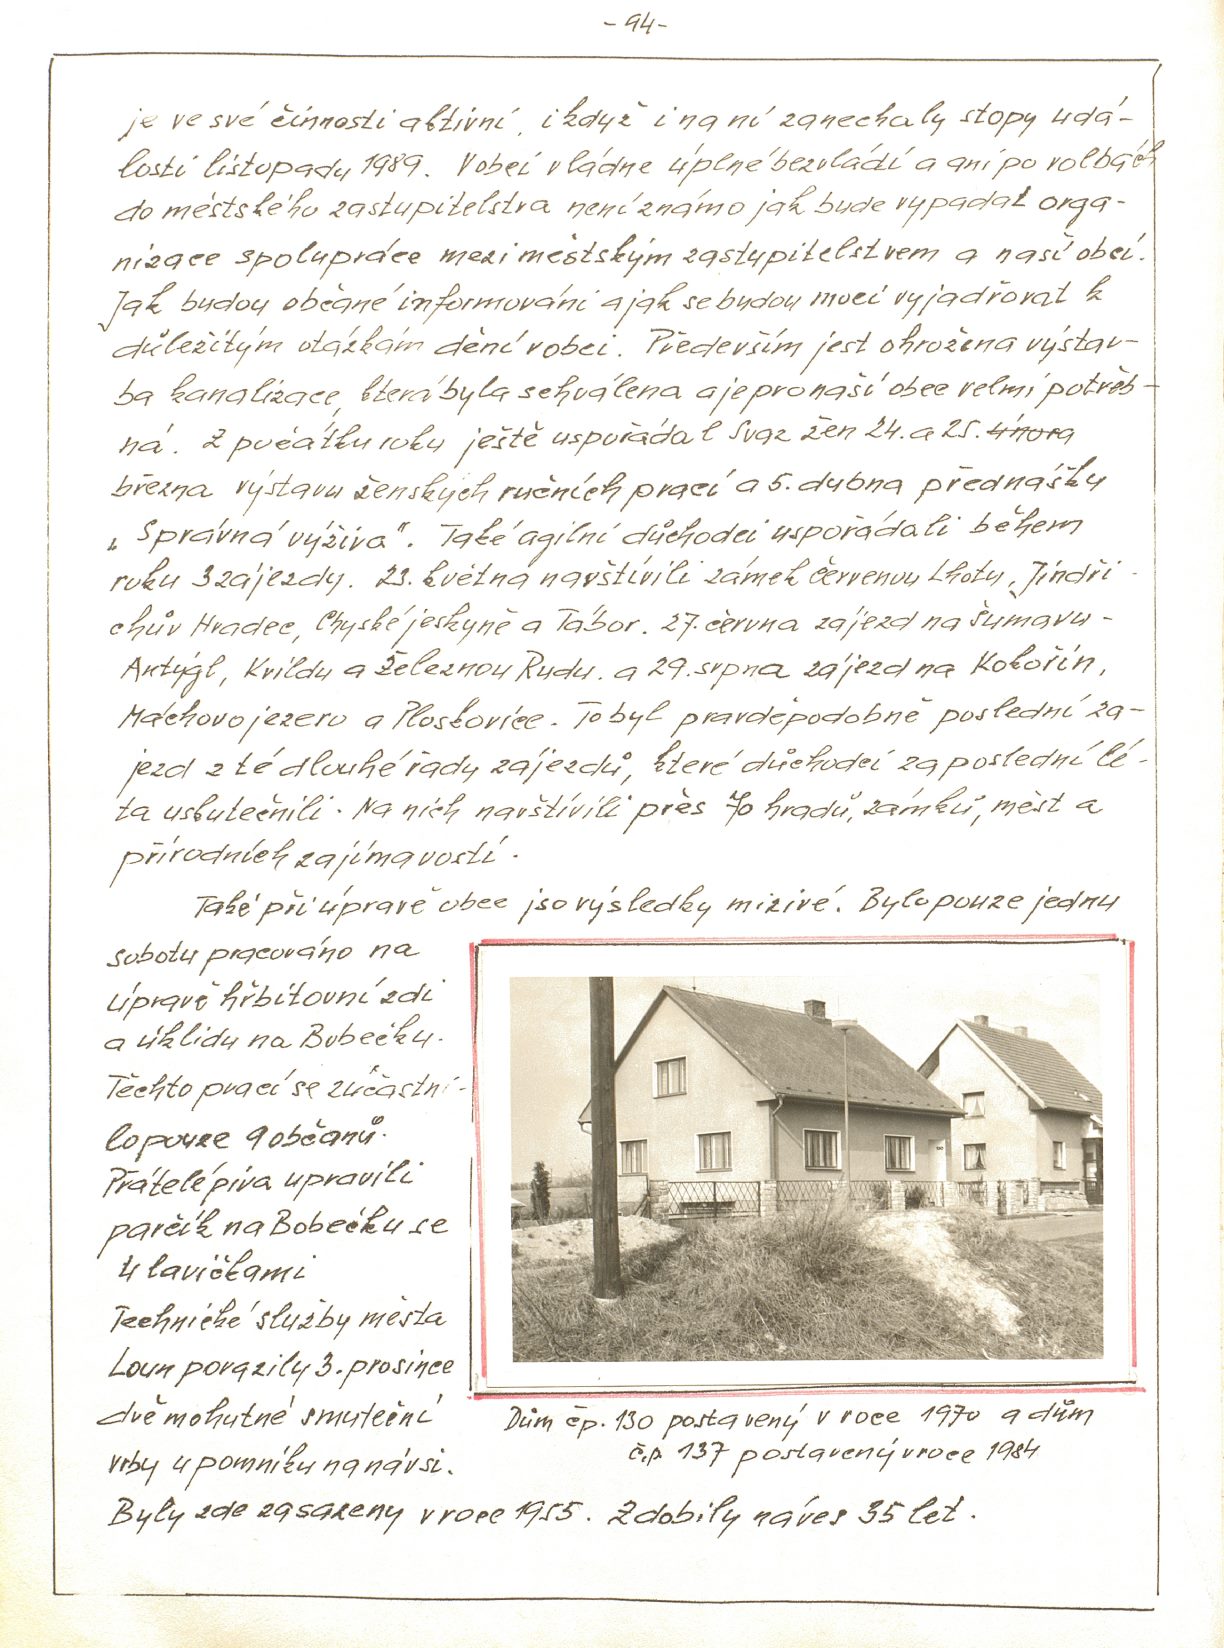 - 94 -
je ve své činnosti aktivní, i když i na ní zanechaly stopy udá-
losti listopadu 1989. V obci vládne úplné bezvládí a ani po volbách
do městského zastupitelstva není známo jak bude vypadat orga-
nizace spolupráce mezi městským zastupitelstvem a naší obcí.
Jak budou občané informováni a jak se budou moci vyjadřovat k
důležitým otázkám dění v obci. Především jest ohrožena výstav-
ba kanalizace, která byla schválena a je pro naší obec velmi potřeb-
ná. Z počátku roku ještě uspořádal Svaz žen 24. a 25. února
března výstavu ženských ručních prací a 5. dubna přednášku
„Správná výživa". Také agilní důchodci uspořádali během
roku 3 zájezdy. 23. května navštívili zámek Červenou Lhotu, Jindři-
chův Hradec, Chýské jeskyně a Tábor. 27. června zájezd na Šumavu -
Antýgl, Kvildu a Železnou Rudu. a 29. srpna zájezd na Kokořín,
Máchovo jezero a Ploskovice. To byl pravděpodobně poslední zá-
jezd z té dlouhé řady zájezdů, které důchodci za poslední lé-
ta uskutečnili. Na nich navštívili přes 70 hradů, zámků, měst a
přírodních zajímavostí.
Také při úpravě obce jso výsledky mizivé. Bylo pouze jednu
sobotu pracováno na
úpravě hřbitovní zdi
a úklidu na Bobečku.
Těchto prací se zúčastni-
lo pouze 9 občanů.
Přátelé piva upravili
parčík na Bobečku se
4 lavičkami
Technické služby města
Loun porazily 3. prosince
dvě mohutné smuteční
vrby u pomníku na návsi.
Byly zde zasazeny v roce 1955. Zdobily náves 35 let.
Dům čp. 130 postavený v roce 1970 a dům
č.p. 137 postavený v roce 1984